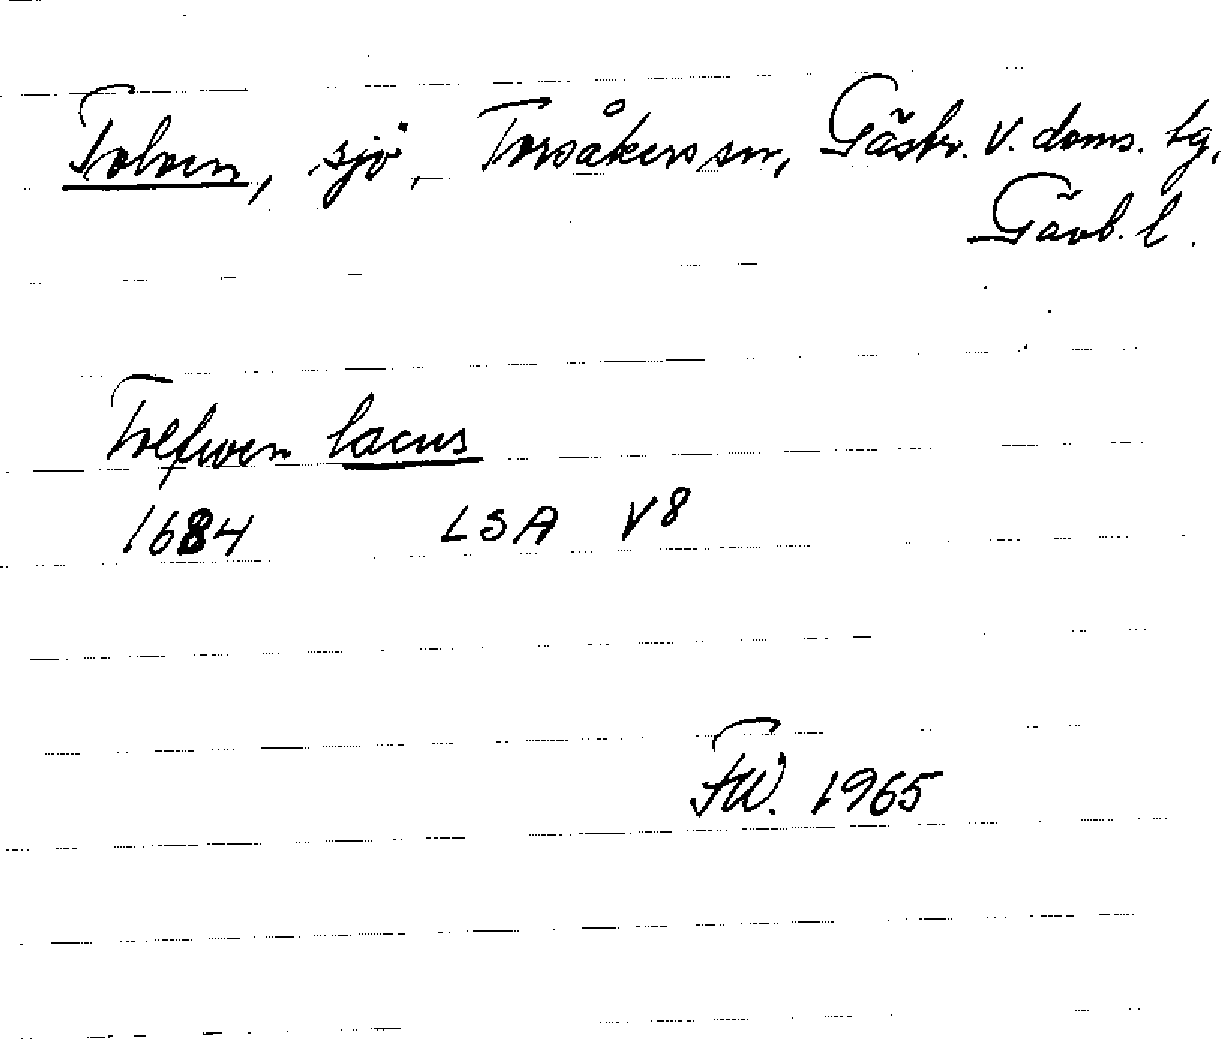 Tolven, sjö, Torsåkers sn, Gästr. V. doms. tg,
Gävl. l.
Tolfwen lacus
1684 LSA V8
FW. 1965